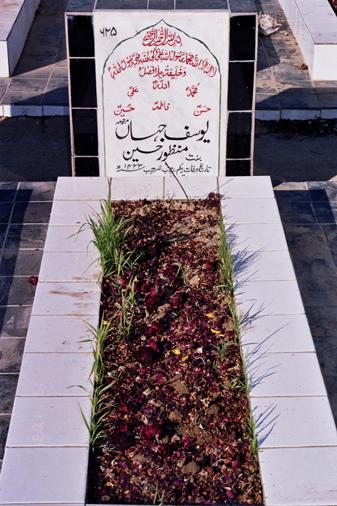 ۶۲۵
بسم اللہ الرحمن الرحیم
لا الہ الا اللہ محمد رسول اللہ علی ولی اللہ وصی رسول اللہ
وخلیفتہ بلا فصل
اللہ
محمدؐ علیؑ
فاطمہؑ
حسنؑ حسینؑ
یوسف جہاں
بنت منظور حسین
تاریخ وفات یکم رجب المرجب ۱۴۲۳ھ